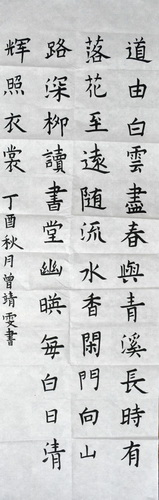 道由白雲盡春與青溪長時有
落花至遠随流水香閑門向山
路深柳讀書堂幽暎每白日清
輝照衣裳 丁酉秋月曾靖雯書